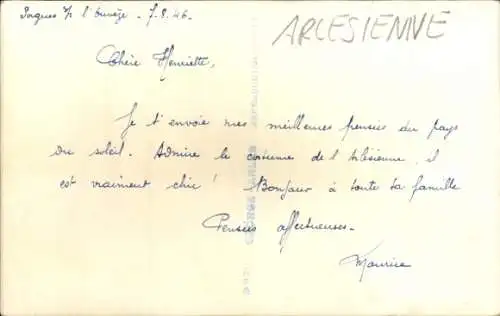 Sorgues s/ l'Ouvèze - 7.8.46.
ARLESIENNE
Chère Henriette,
Je t'envoie mes meilleures pensées du pays
du soleil. Admire le costume de l'Arlésienne, il
est vraiment chic ! Bonjour à toute ta famille
Pensées affectueuses.
Maurice